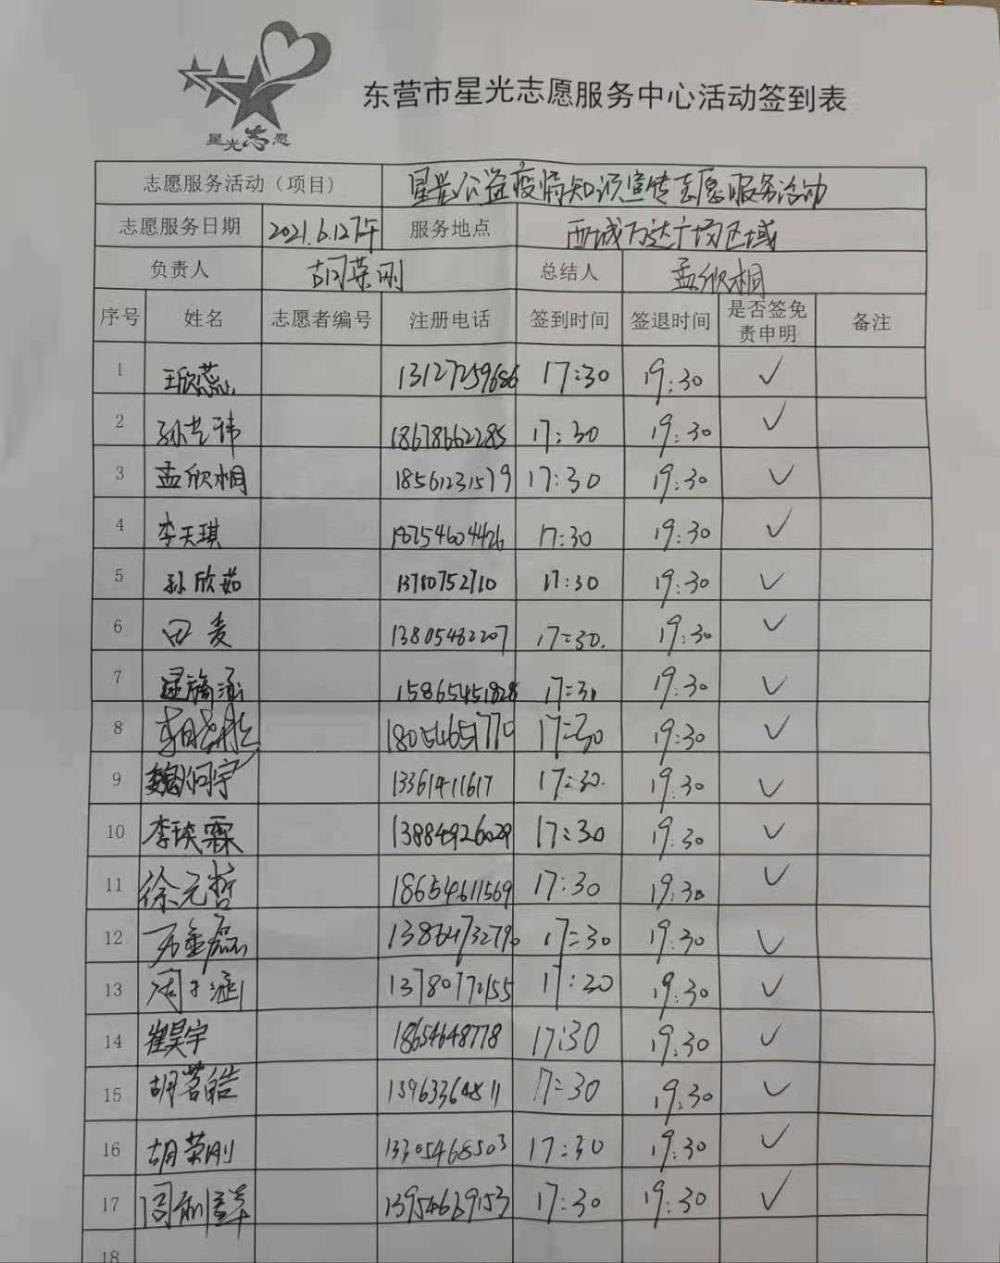 星光志愿
东营市星光志愿服务中心活动签到表
志愿服务活动（项目） 星光公益疫情知识宣传志愿服务活动
志愿服务日期 2021.6.12下午 服务地点 西城万达广场区域
负责人 胡荣刚 总结人 孟欣桐
序号 姓名 志愿者编号 注册电话 签到时间 签退时间 是否签免责申明 备注
1 王欣蕊 13127259686 17:30 19:30 ✓
2 孙艺玮 18678662285 17:30 19:30 ✓
3 孟欣桐 18561231579 17:30 19:30 ✓
4 李天琪 18754604426 17:30 19:30 ✓
5 孙欣茹 13780752710 17:30 19:30 ✓
6 田麦 13805462207 17:30. 19:30 ✓
7 15865451828 17:30 19:30 ✓
8 18054651770 17:30 19:30 ✓
9 魏 宇 13361411617 17:30. 19:30 ✓
10 李 霖 13884926029 17:30 19:30 ✓
11 徐元哲 18654611569 17:30 19:30 ✓
12 磊 13864732790 17:30 19:30 ✓
13 周子涵 13780772155 17:30 19:30 ✓
14 崔昊宇 18654648778 17:30 19:30 ✓
15 胡茗皓 13963364811 17:30 19:30 ✓
16 胡荣刚 13305468503 17:30 19:30 ✓
17 13954629153 17:30 19:30 ✓
18